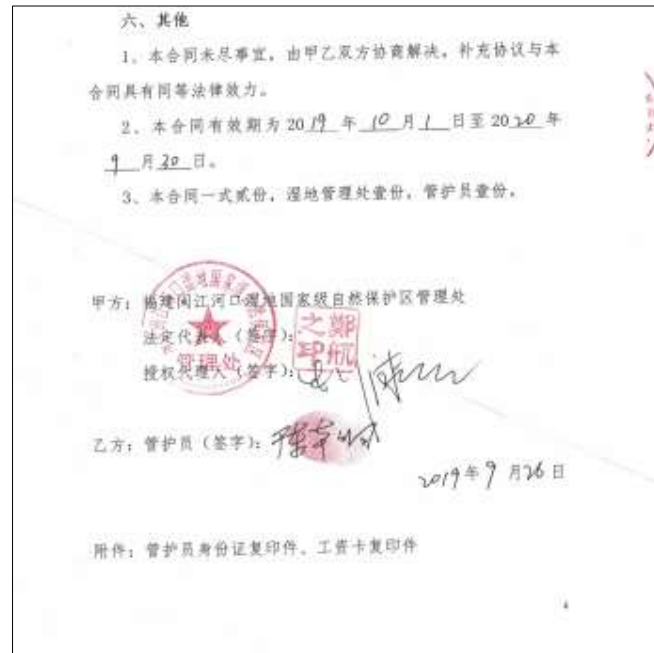 六、其他
1、本合同未尽事宜,由甲乙双方协商解决,补充协议与本
合同具有同等法律效力。
2、本合同有效期为2019年10月1日至2020年
9月30日。
3、本合同一式贰份,湿地管理处壹份,管护员壹份。
甲方:福建闽江河口湿地国家级自然保护区管理处
法定代表人(签字):
郑航之印
管理处
授权代理人(签字):
乙方:管护员(签字):
2019年9月26日
附件:管护员身份证复印件、工资卡复印件
4